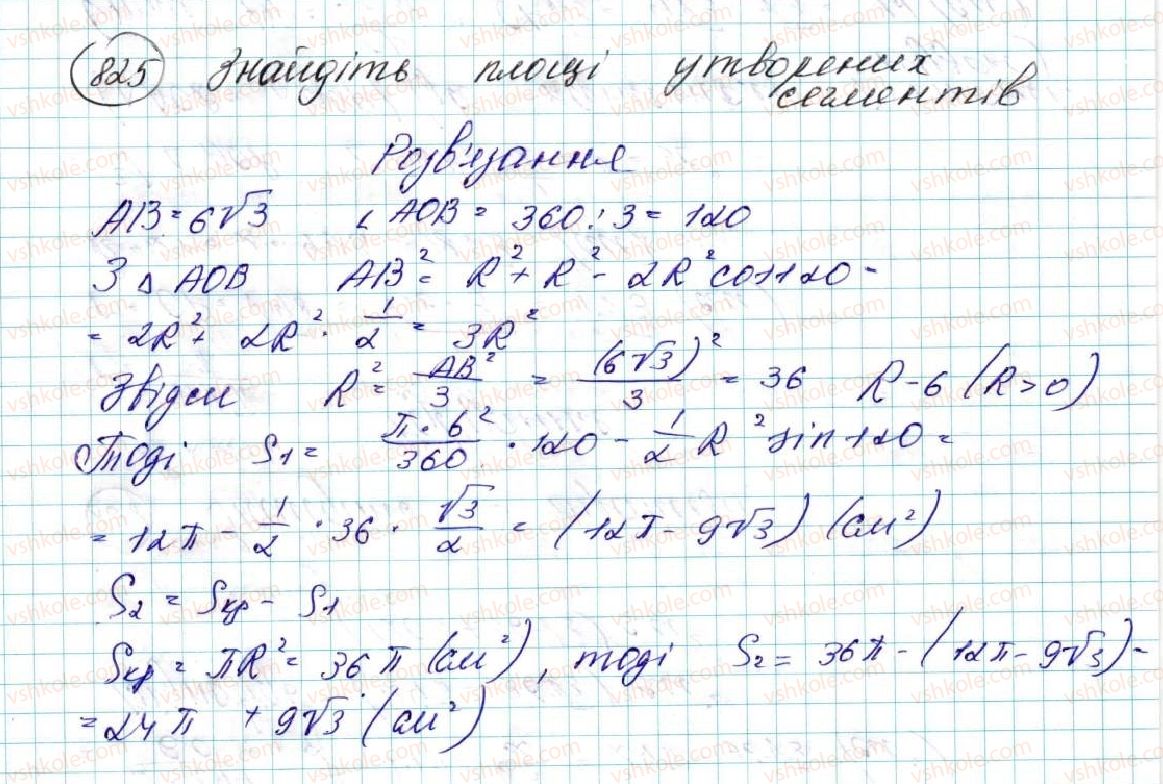 825 Знайдіть площі утворених
сегментів
Розв'язання
AB = 6√3 ∠AOB = 360 : 3 = 120
З △ AOB AB² = R² + R² - 2R² cos 120 =
= 2R² + 2R² · 1/2 = 3R²
Звідси R² = AB²/3 = (6√3)²/3 = 36 R - 6 (R > 0)
Тоді S₁ = π · 6²/360 · 120 - 1/2 R² sin 120 =
= 12π - 1/2 · 36 · √3/2 = (12π - 9√3) (см²)
S₂ = Sкр - S₁
Sкр = πR² = 36π (см²), тоді S₂ = 36π - (12π - 9√3) =
= 24π + 9√3 (см²)